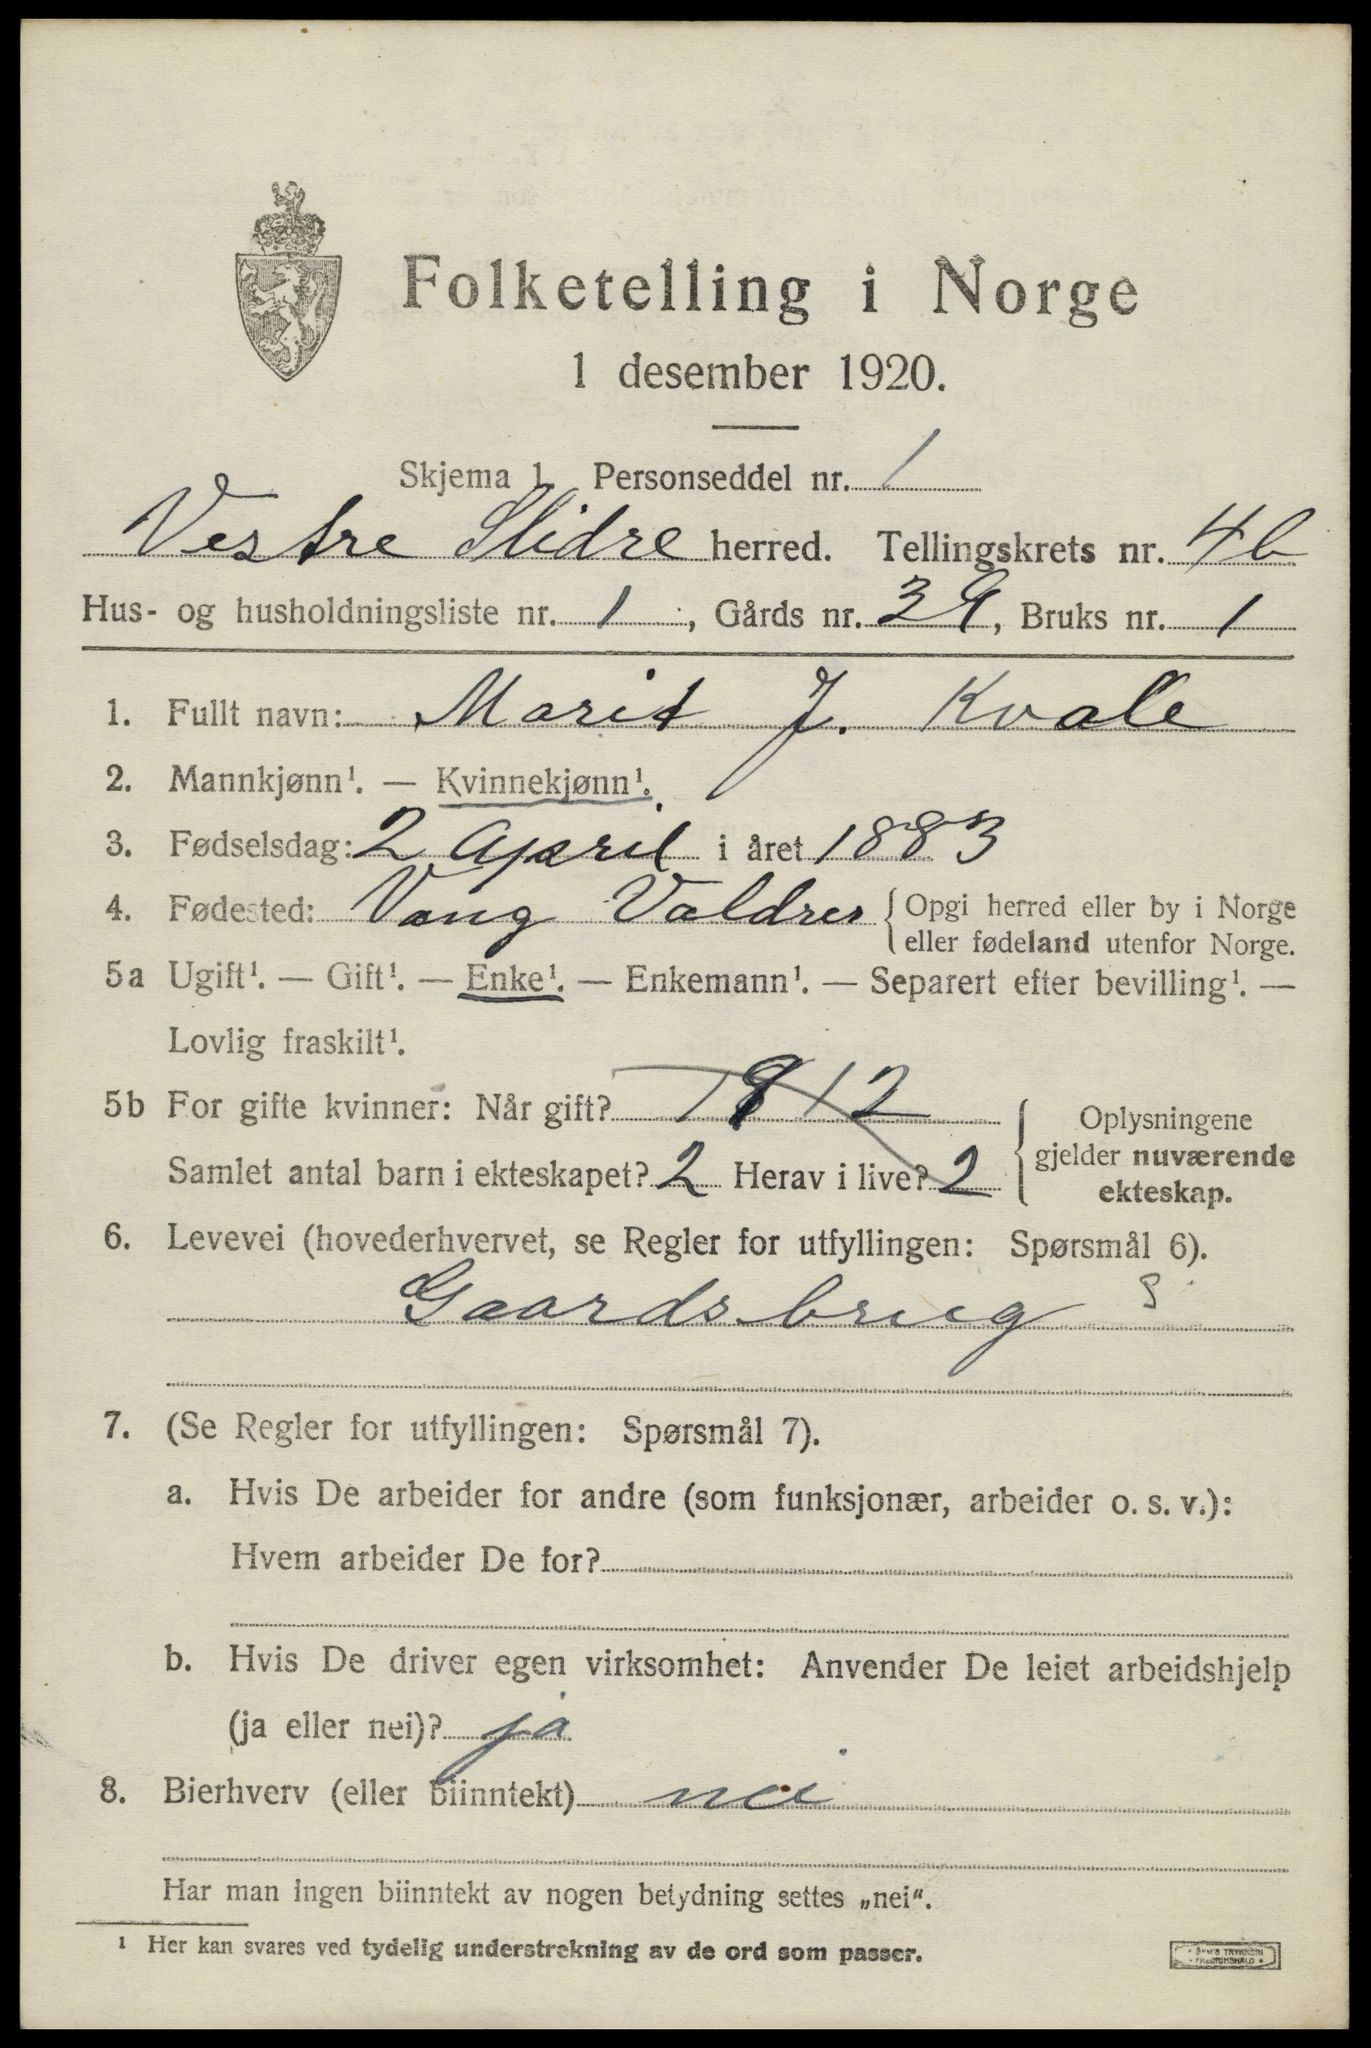 Folketelling i Norge
1 desember 1920.
Skjema 1. Personseddel nr. 1
Vestre Slidre herred. Tellingskrets nr. 4b
Hus- og husholdningsliste nr. 1, Gårds nr. 39, Bruks nr. 1
1. Fullt navn: Marit J. Kvale
2. Mannkjønn¹. — Kvinnekjønn¹.
3. Fødselsdag: 2 April i året 1883
4. Fødested: Vang Valdres { Opgi herred eller by i Norge
eller fødeland utenfor Norge.
5a Ugift¹. — Gift¹. — Enke¹. — Enkemann¹. — Separert efter bevilling¹. —
Lovlig fraskilt¹.
5b For gifte kvinner: Når gift? 1912
Samlet antal barn i ekteskapet? 2 Herav i live? 2
{ Oplysningene
gjelder nuværende
ekteskap.
6. Levevei (hovederhvervet, se Regler for utfyllingen: Spørsmål 6).
Gaardsbrug
7. (Se Regler for utfyllingen: Spørsmål 7).
a. Hvis De arbeider for andre (som funksjonær, arbeider o. s. v.):
Hvem arbeider De for?
b. Hvis De driver egen virksomhet: Anvender De leiet arbeidshjelp
(ja eller nei)? ja
8. Bierhverv (eller biinntekt) nei
Har man ingen biinntekt av nogen betydning settes „nei“.
¹ Her kan svares ved tydelig understrekning av de ord som passer.